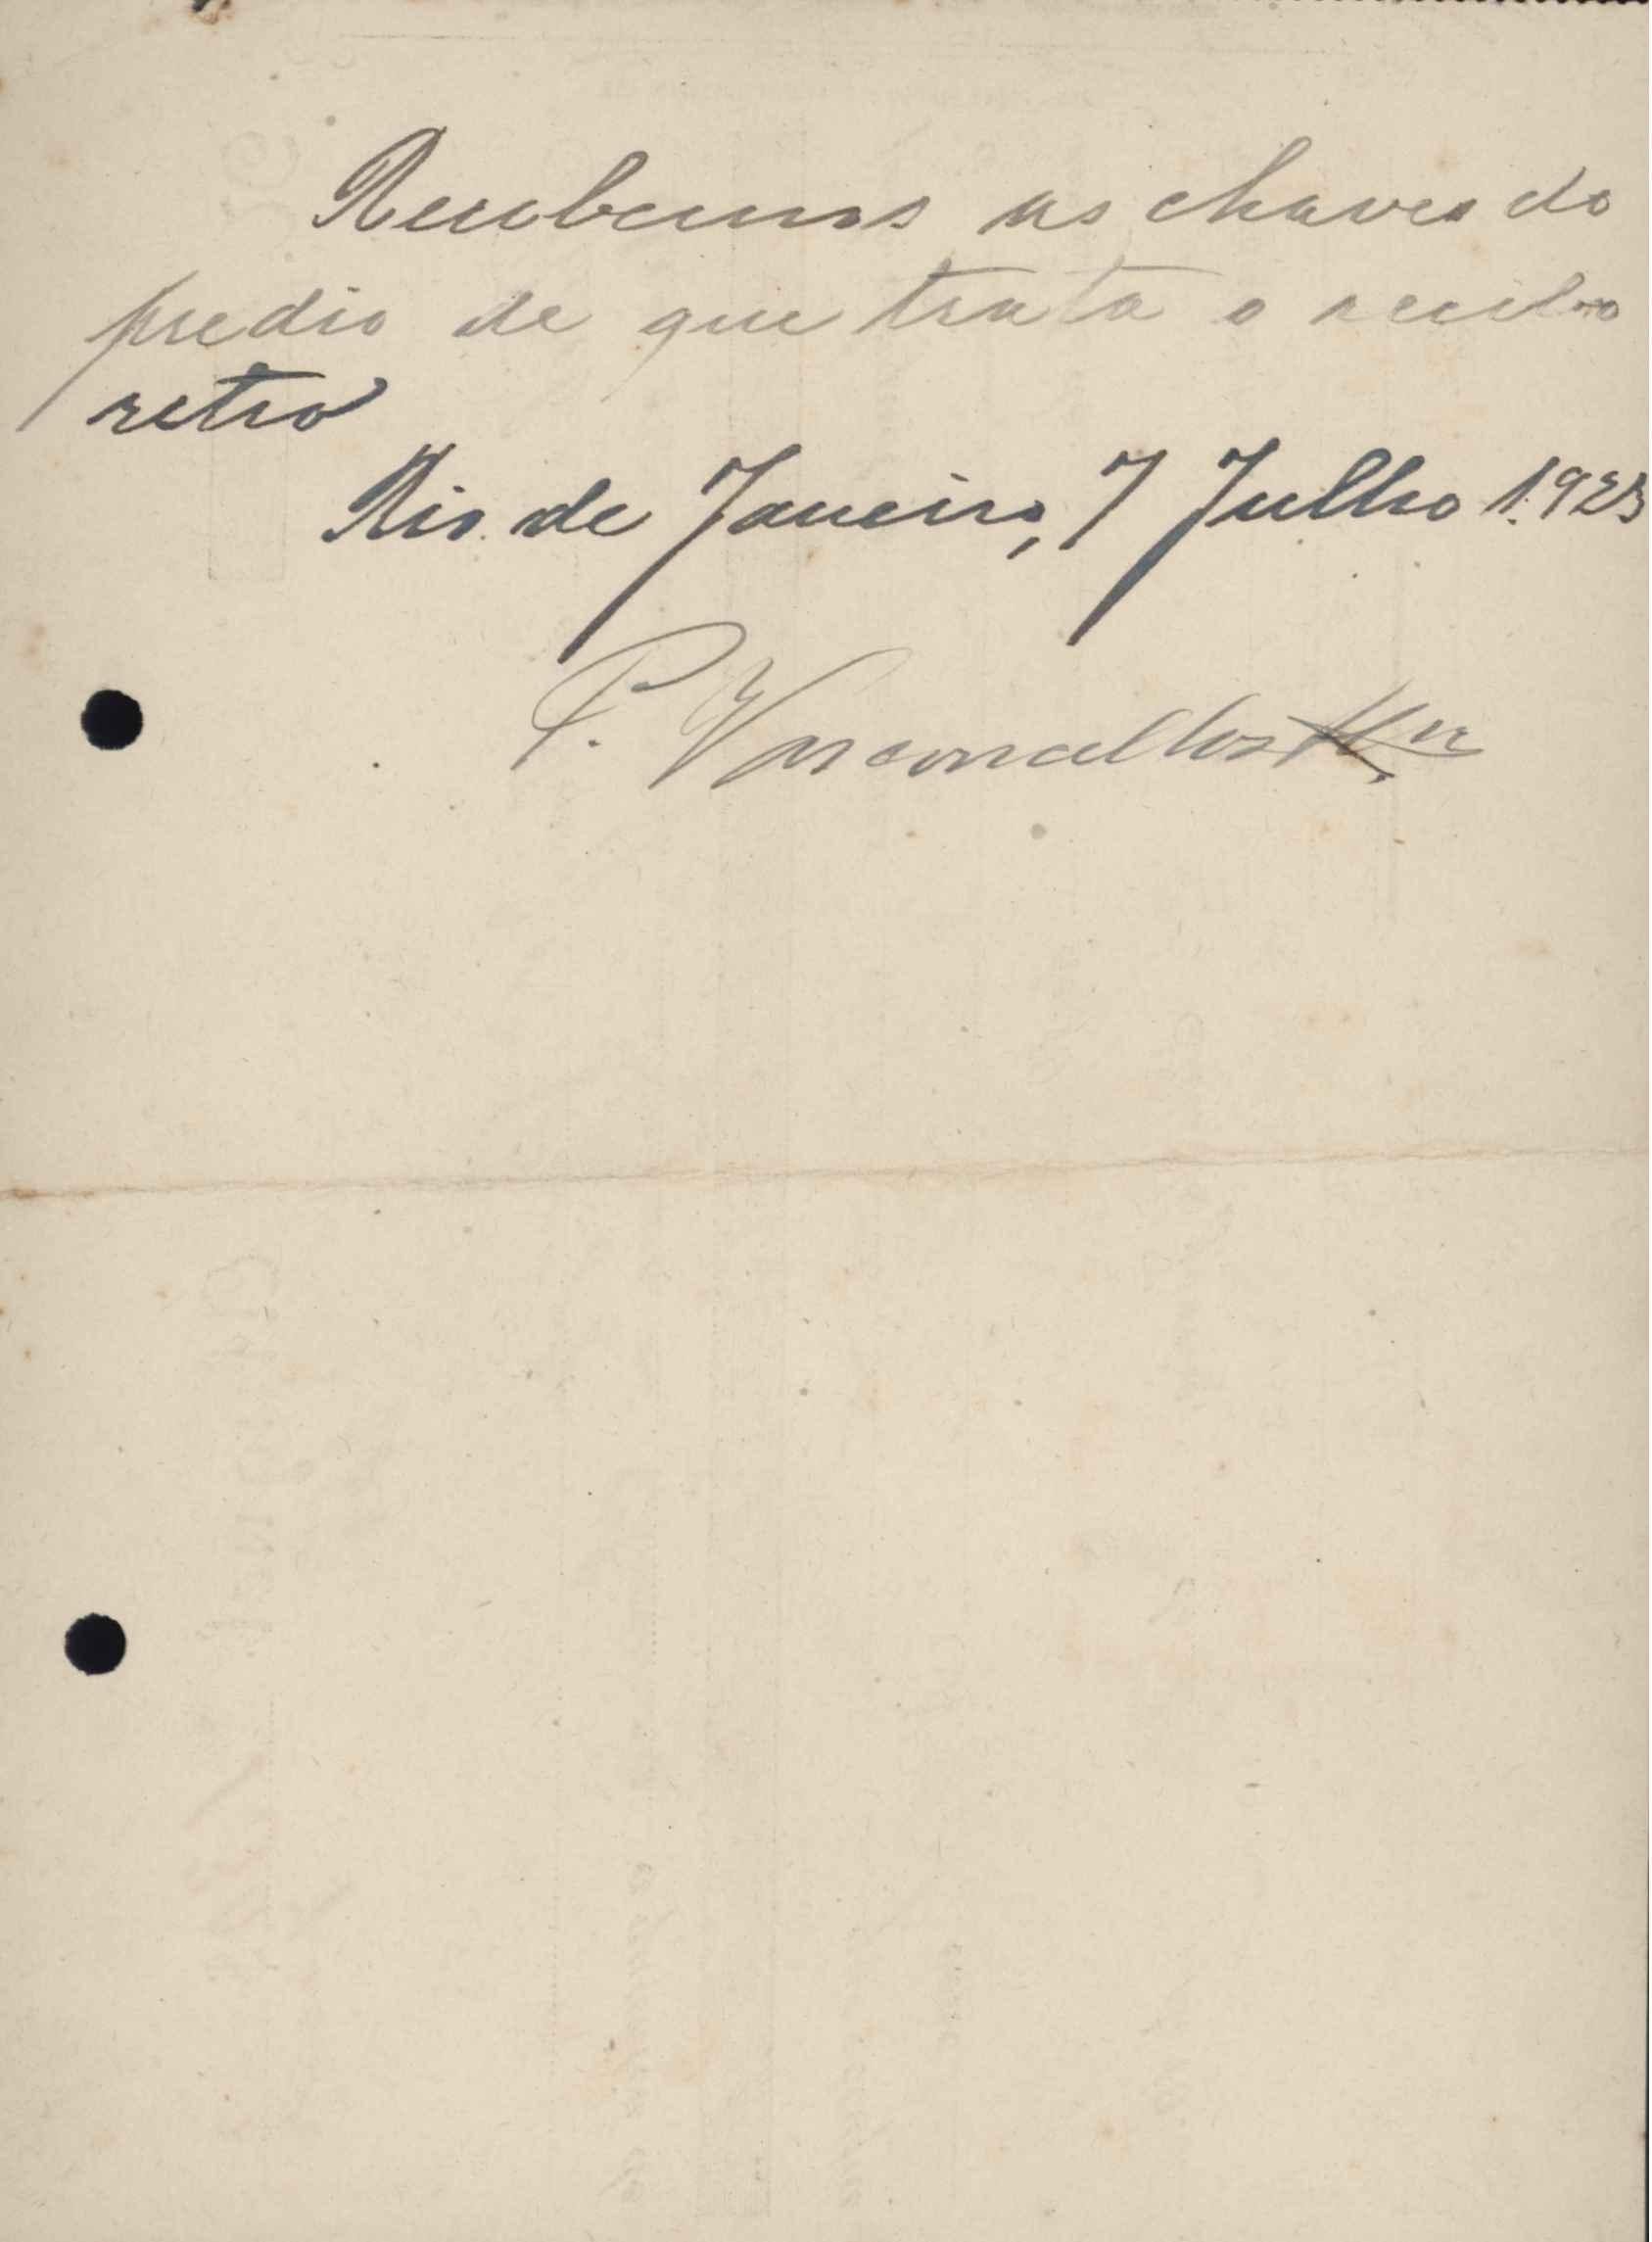 Recebemos as chaves do
predio de que trata o recibo
retro
Rio de Janeiro, 7 Julho 1.923
P. Vasconcellos